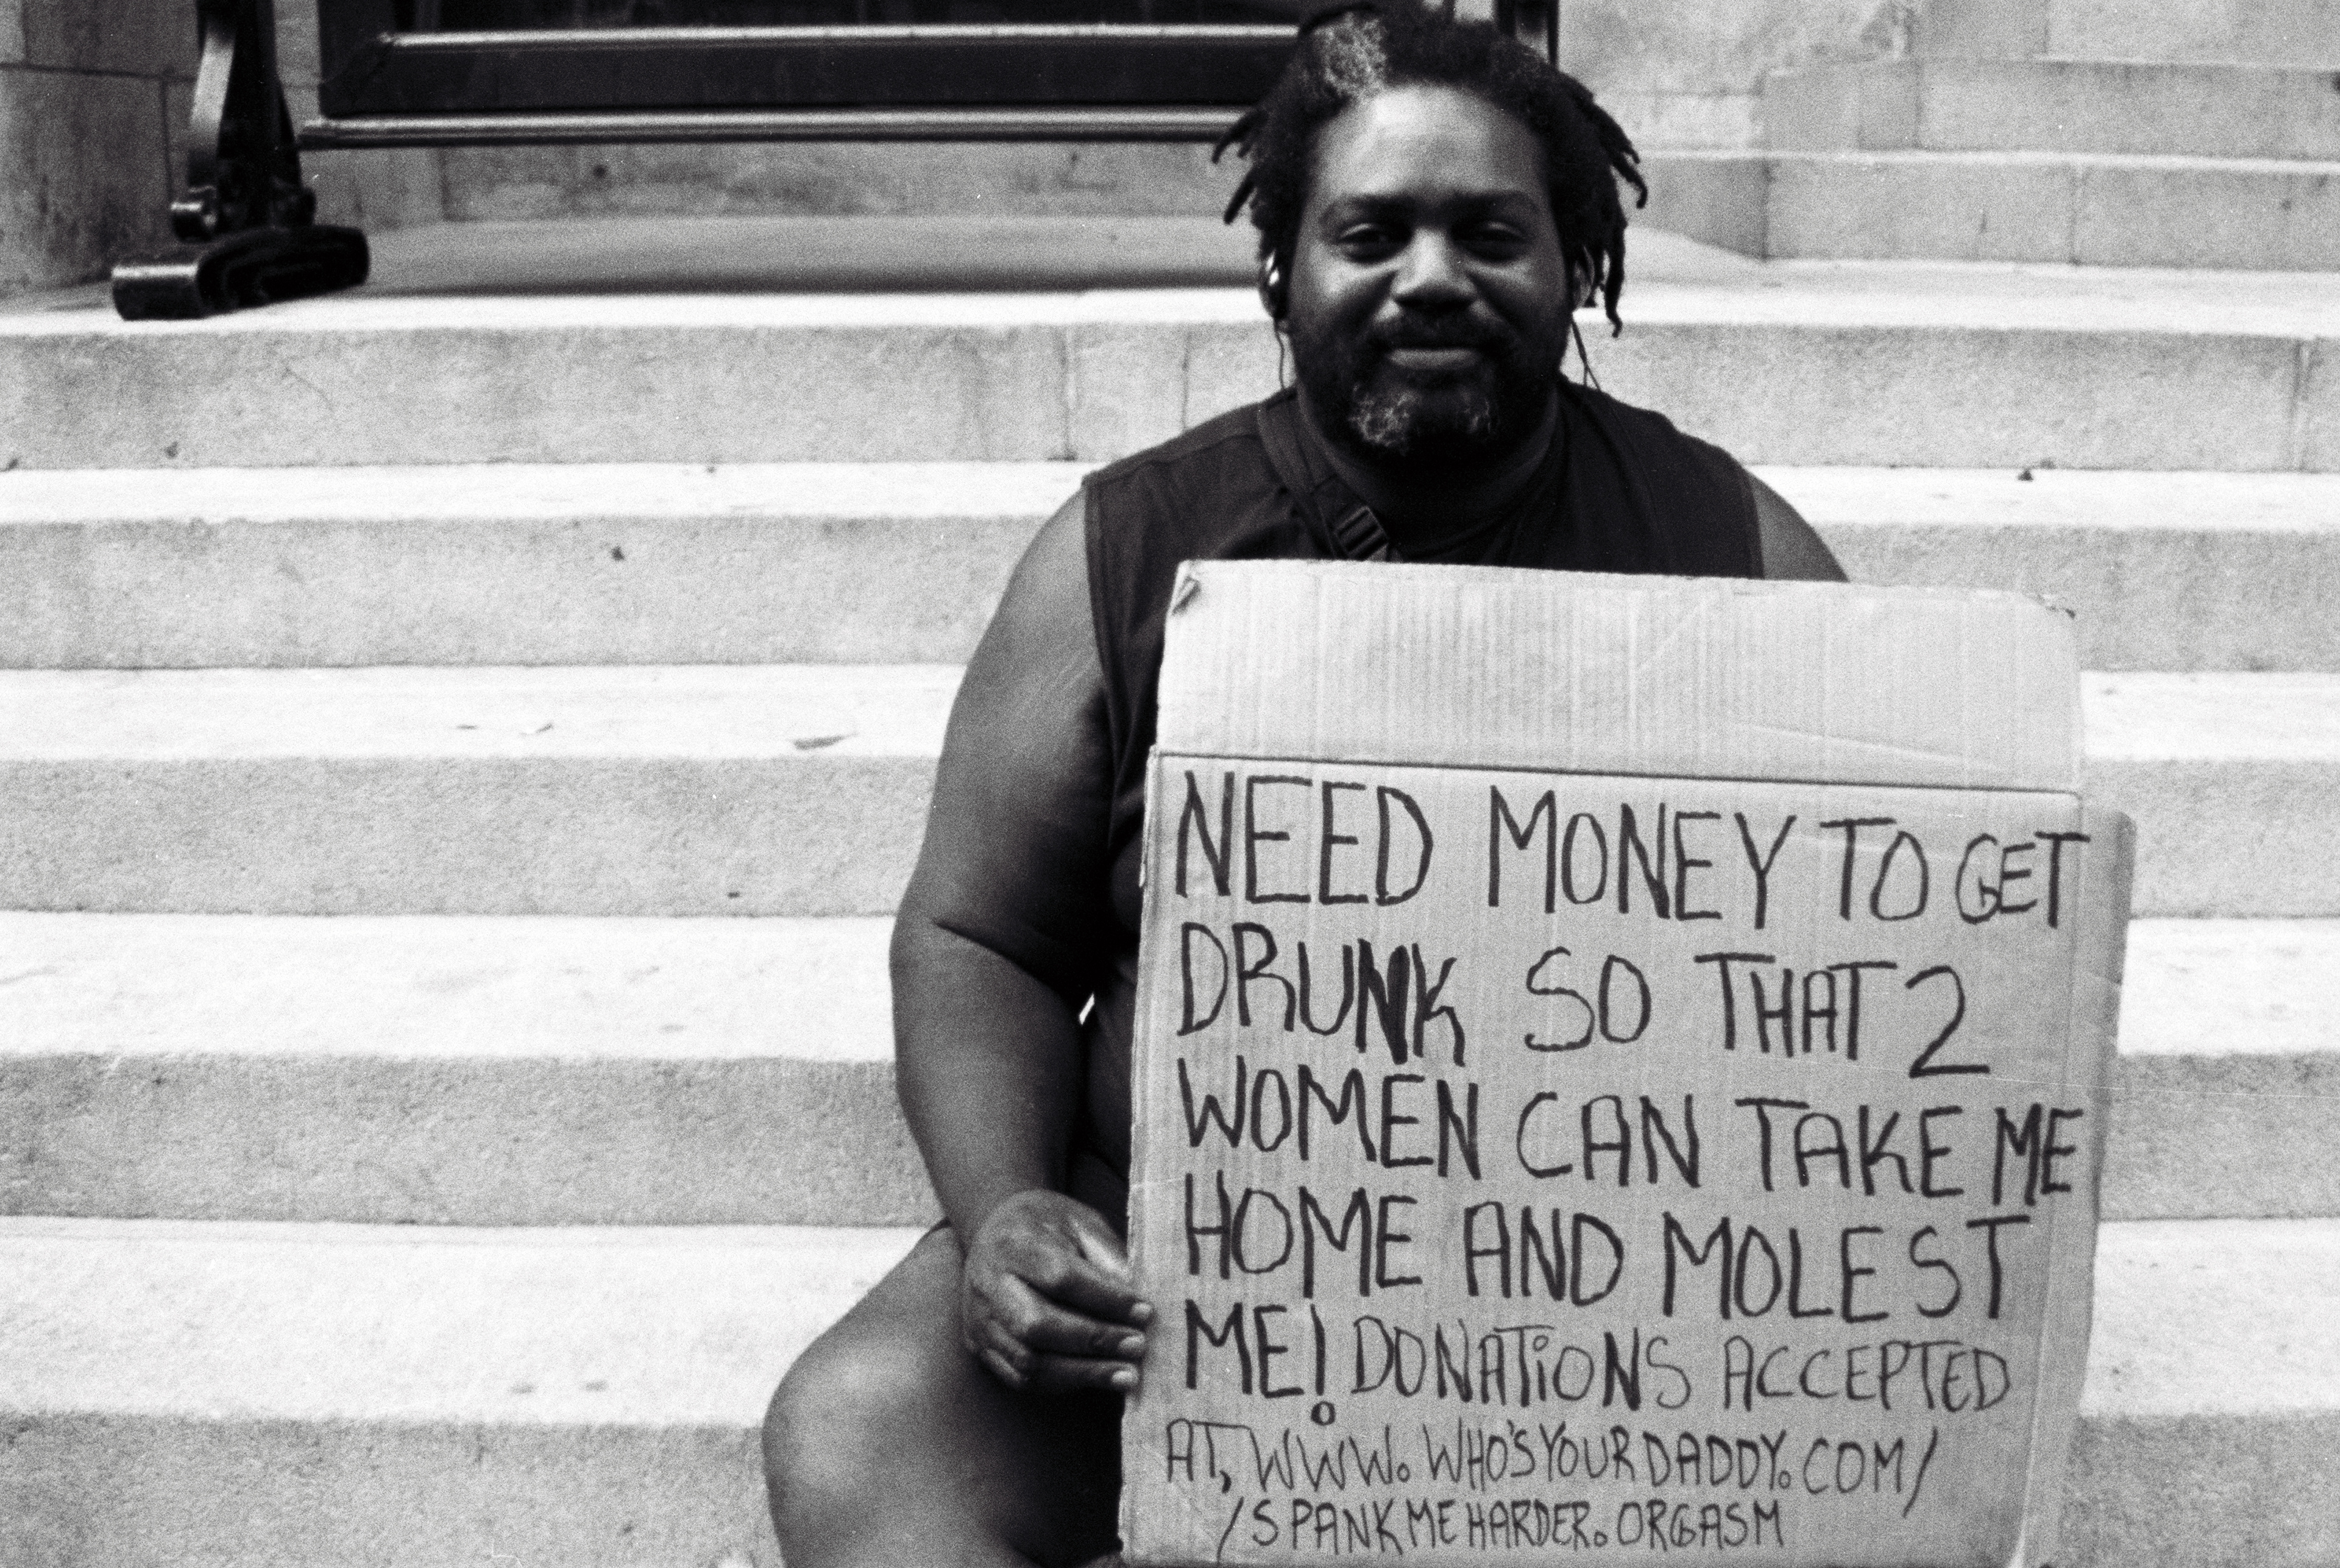 NEED MONEY TO GET
DRUNK SO THAT 2
WOMEN CAN TAKE ME
HOME AND MOLEST
ME! DONATIONS ACCEPTED
AT, WWW.WHO'SYOURDADDY.COM/
/SPANKMEHARDER.ORGASM